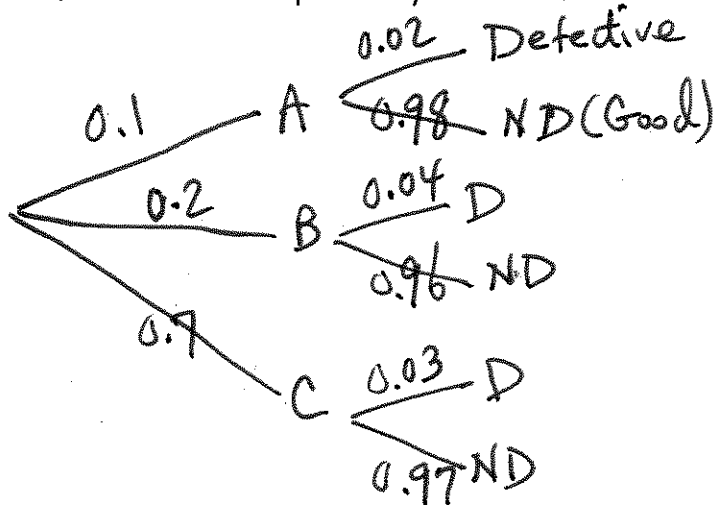 0.02 Defective
0.1 A 0.98 ND (Good)
0.2 B 0.04 D
0.96 ND
0.7
C 0.03 D
0.97 ND